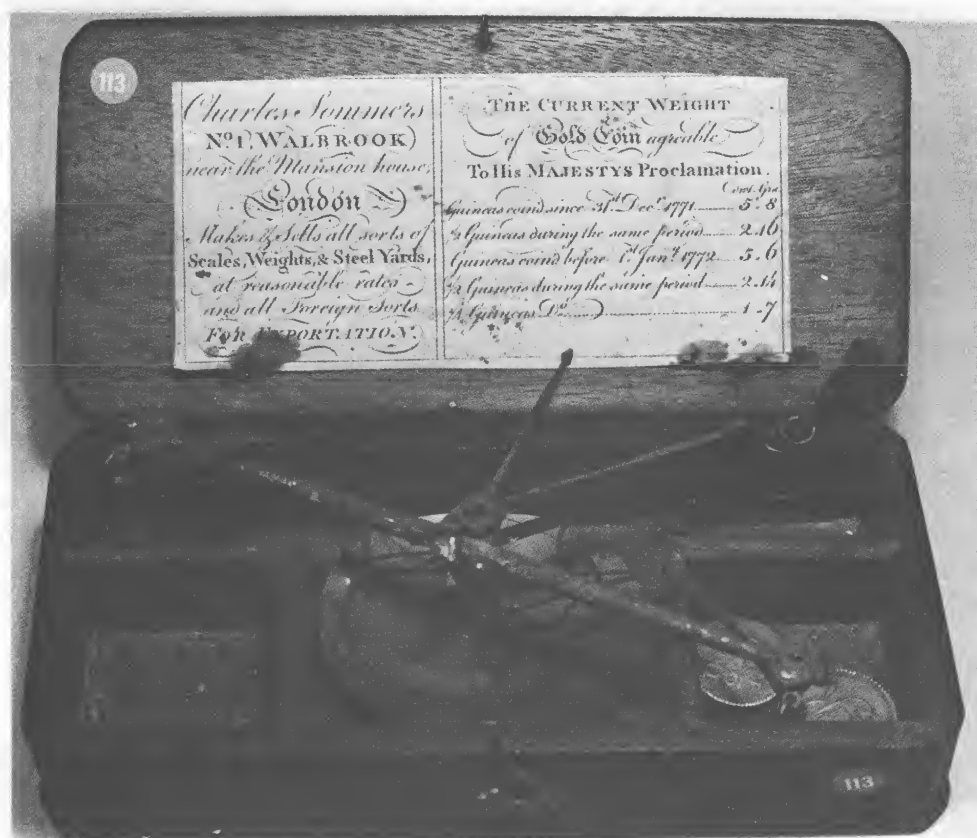 113
Charles Sommers
No. 1, WALBROOK
near the Mansion house,
London
Makes & Sells all sorts of
Scales, Weights, & Steel Yards,
at reasonable rates
and all Foreign Sorts
FOR EXPORTATION.
THE CURRENT WEIGHT
of Gold Coin agreable
To His MAJESTYS Proclamation.
dwt. Grs
Guineas coind since 31st. Decr. 1771 5. 8
½ Guineas during the same period 2. 16
Guineas coind before 1st. Jany. 1772 5. 6
½ Guineas during the same period 2. 14
¼ Guineas Do. 1. 7
113